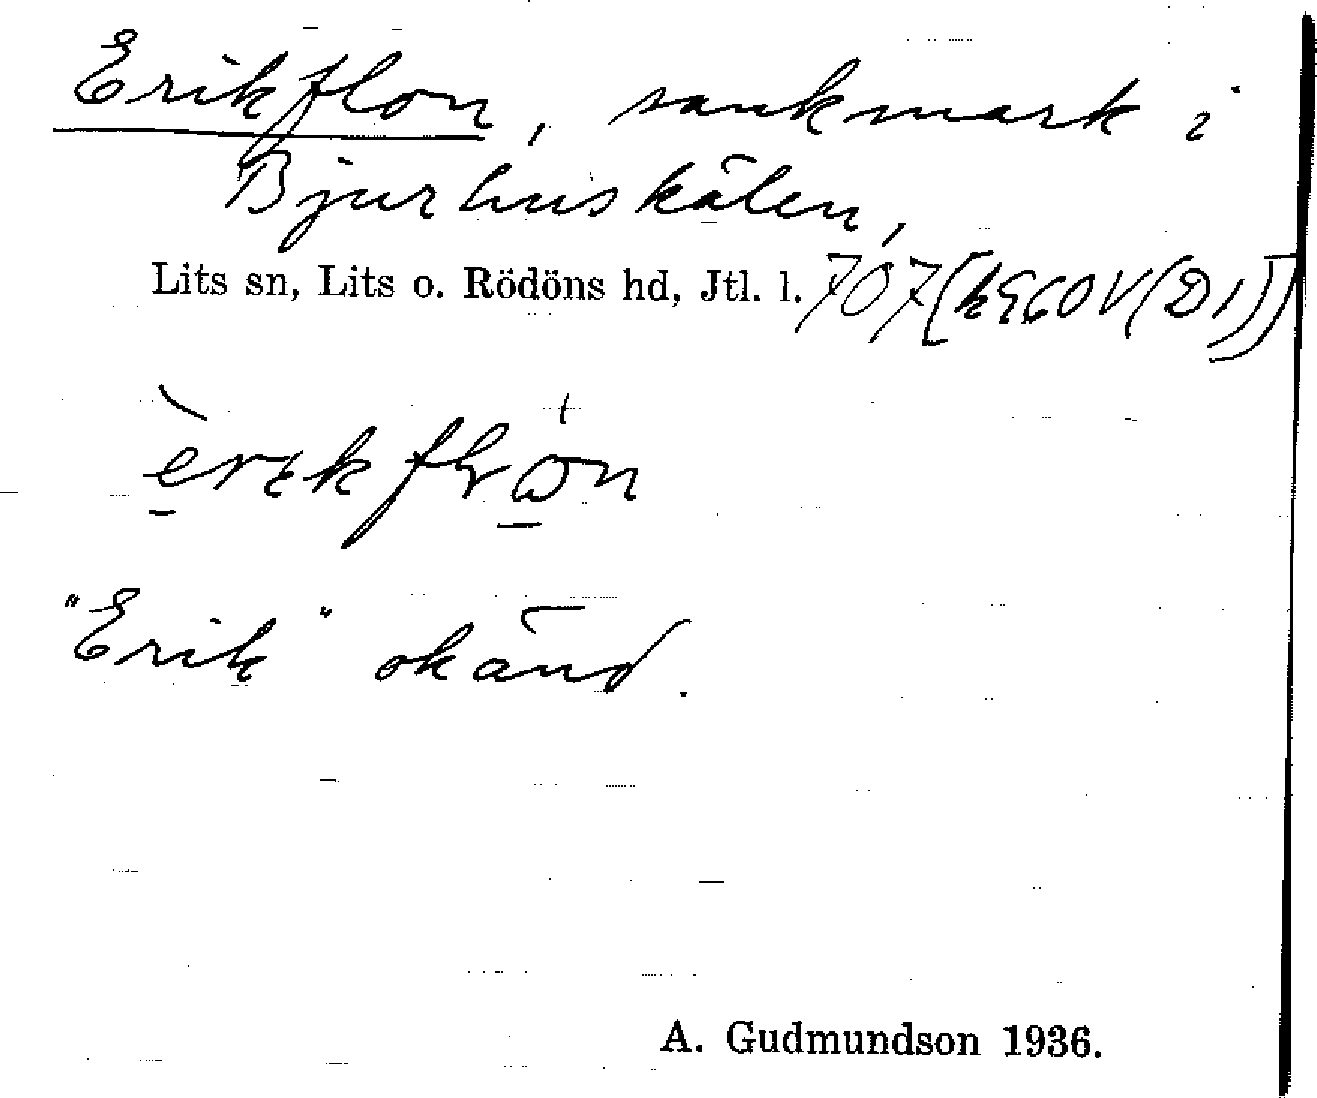 Erikflon, sankmark i
Bjurhuskälen,
Lits sn, Lits o. Rödöns hd, Jtl. l. 707
"Erik" okänd.
A. Gudmundson 1936.